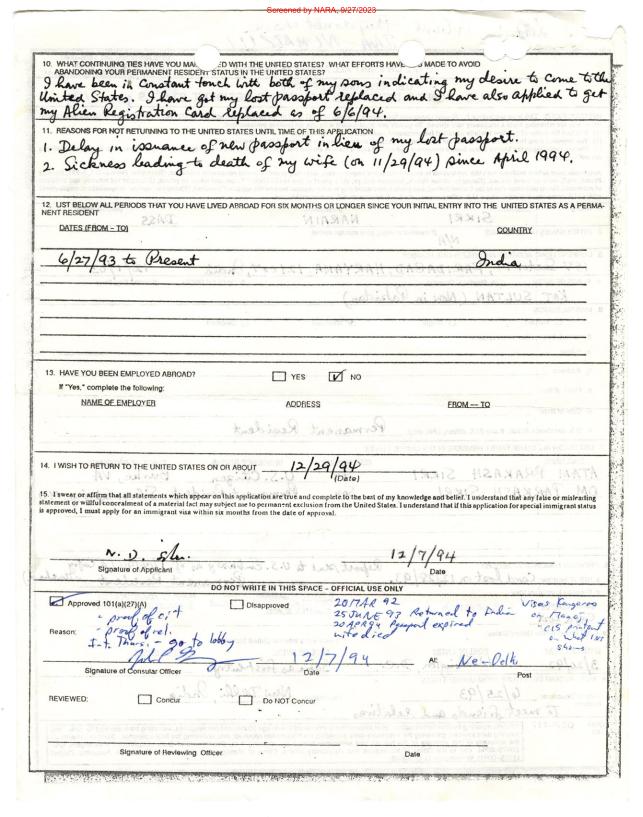 Screened by NARA, 9/27/2023
10. WHAT CONTINUING TIES HAVE YOU MA ED WITH THE UNITED STATES? WHAT EFFORTS HAVE MADE TO AVOID
ABANDONING YOUR PERMANENT RESIDENT STATUS IN THE UNITED STATES?
I have been in Constant touch with both of my sons indicating my desire to come to the
United States. I have got my lost passport replaced and I have also applied to get
my Alien Registration Card replaced as of 6/6/94.
11. REASONS FOR NOT RETURNING TO THE UNITED STATES UNTIL TIME OF THIS APPLICATION
1. Delay in issuance of new passport in lieu of my lost passport.
2. Sickness leading to death of my wife (on 11/29/94) since April 1994.
12. LIST BELOW ALL PERIODS THAT YOU HAVE LIVED ABROAD FOR SIX MONTHS OR LONGER SINCE YOUR INITIAL ENTRY INTO THE UNITED STATES AS A PERMA-
NENT RESIDENT
DATES (FROM – TO) COUNTRY
6/27/93 to Present India
13. HAVE YOU BEEN EMPLOYED ABROAD? YES NO
If "Yes," complete the following:
NAME OF EMPLOYER ADDRESS FROM — TO
14. I WISH TO RETURN TO THE UNITED STATES ON OR ABOUT 12/29/94
(Date)
15. I swear or affirm that all statements which appear on this application are true and complete to the best of my knowledge and belief. I understand that any false or misleading
statement or willful concealment of a material fact may subject me to permanent exclusion from the United States. I understand that if this application for special immigrant status
is approved, I must apply for an immigrant visa within six months from the date of approval.
N. D. 12/7/94
Signature of Applicant Date
DO NOT WRITE IN THIS SPACE – OFFICIAL USE ONLY
Approved 101(a)(27)(A) Disapproved
20 MAR 92
25 JUNE 93 Returned to India
20 APR 94 Passport expired
wife died
Visas Kangaroo
on Manoj
- CIS printout
on what INS
shows
Reason:
- proof of cit
- proof of rel.
Int. Thurs. – go to lobby
12/7/94 At: New Delhi
Signature of Consular Officer Date Post
REVIEWED: Concur Do NOT Concur
Signature of Reviewing Officer Date